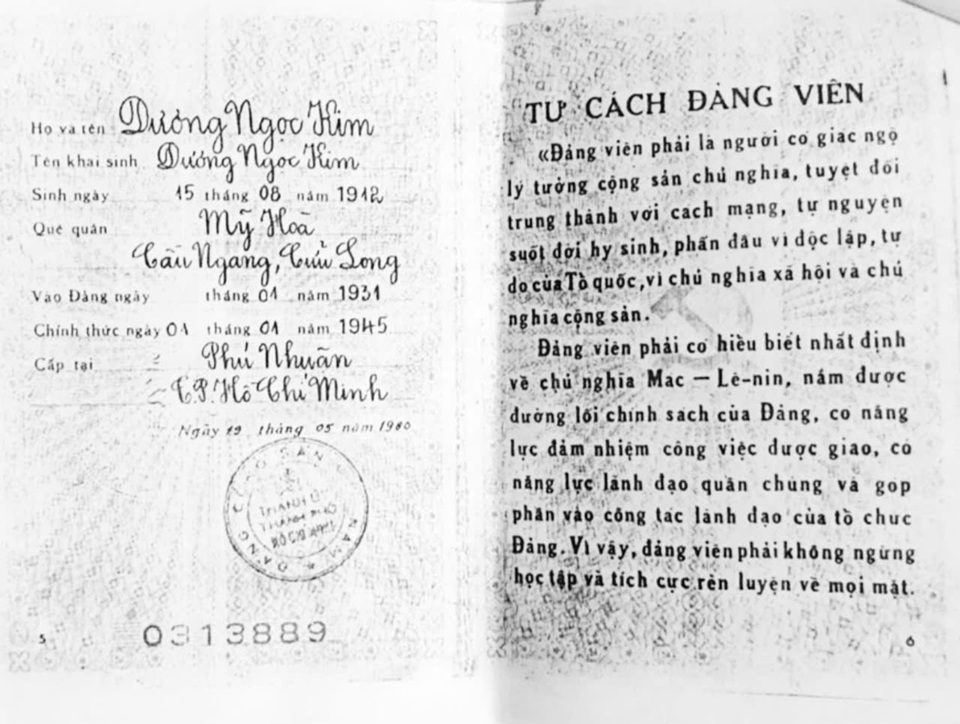 Họ và tên Dương Ngọc Kim
Tên khai sinh Dương Ngọc Kim
Sinh ngày 15 tháng 08 năm 1912
Quê quán Mỹ Hoà
Cầu Ngang, Cửu Long
Vào Đảng ngày tháng 01 năm 1931
Chính thức ngày 01 tháng 01 năm 1945
Cấp tại Phú Nhuận
T.P. Hồ Chí Minh
Ngày 19 tháng 05 năm 1980
ĐẢNG CỘNG SẢN VIỆT NAM
THÀNH ỦY
THÀNH PHỐ
HỒ CHÍ MINH
0313889
5
TƯ CÁCH ĐẢNG VIÊN
«Đảng viên phải là người có giác ngộ
lý tưởng cộng sản chủ nghĩa, tuyệt đối
trung thành với cách mạng, tự nguyện
suốt đời hy sinh, phấn đấu vì độc lập, tự
do của Tổ quốc, vì chủ nghĩa xã hội và chủ
nghĩa cộng sản.
Đảng viên phải có hiểu biết nhất định
về chủ nghĩa Mác — Lê-nin, nắm được
đường lối chính sách của Đảng, có năng
lực đảm nhiệm công việc được giao, có
năng lực lãnh đạo quần chúng và góp
phần vào công tác lãnh đạo của tổ chức
Đảng. Vì vậy, đảng viên phải không ngừng
học tập và tích cực rèn luyện về mọi mặt.
6